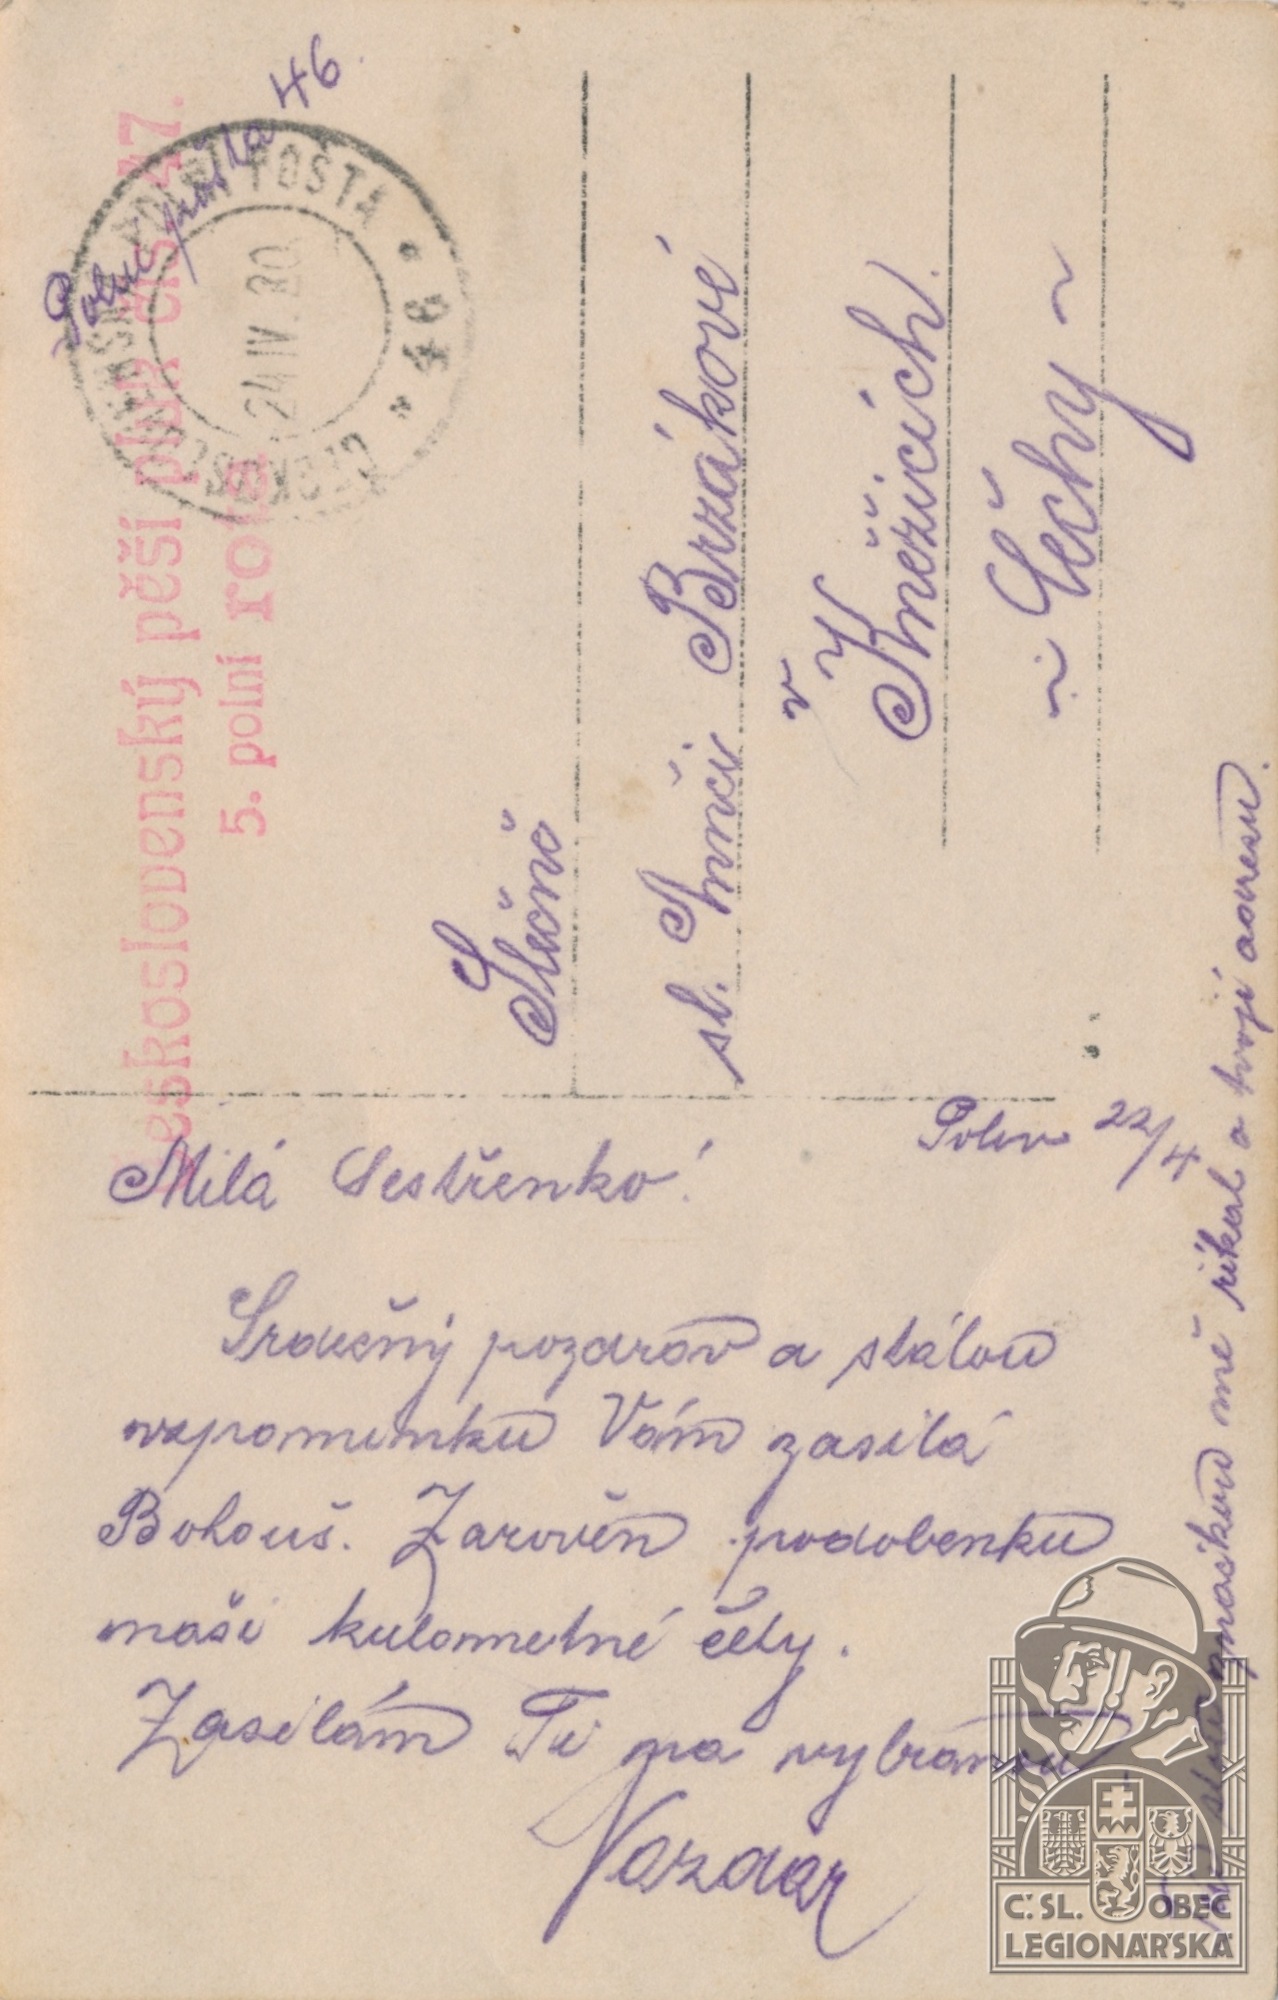 Československý pěší pluk čís. 47.
5. polní rota
Polní pošta 46.
ČESKOSLOVENSKÁ POLNÍ POŠTA
24 IV. 20
* 46 *
Slečně
sl. Anči Brzákové
v Kněžicích.
Čechy
Polem 22/4
Milá Sestřenko!
Srdečný pozdrav a stálou
vzpomínku Vám zasílá
Bohouš. Zarověn podobenku
naší kulometné čéty.
Zasílám Ti na vybranou
Nazdar
mě řikal o tvojí adresu.
Č. SL. OBEC
LEGIONÁŘSKÁ